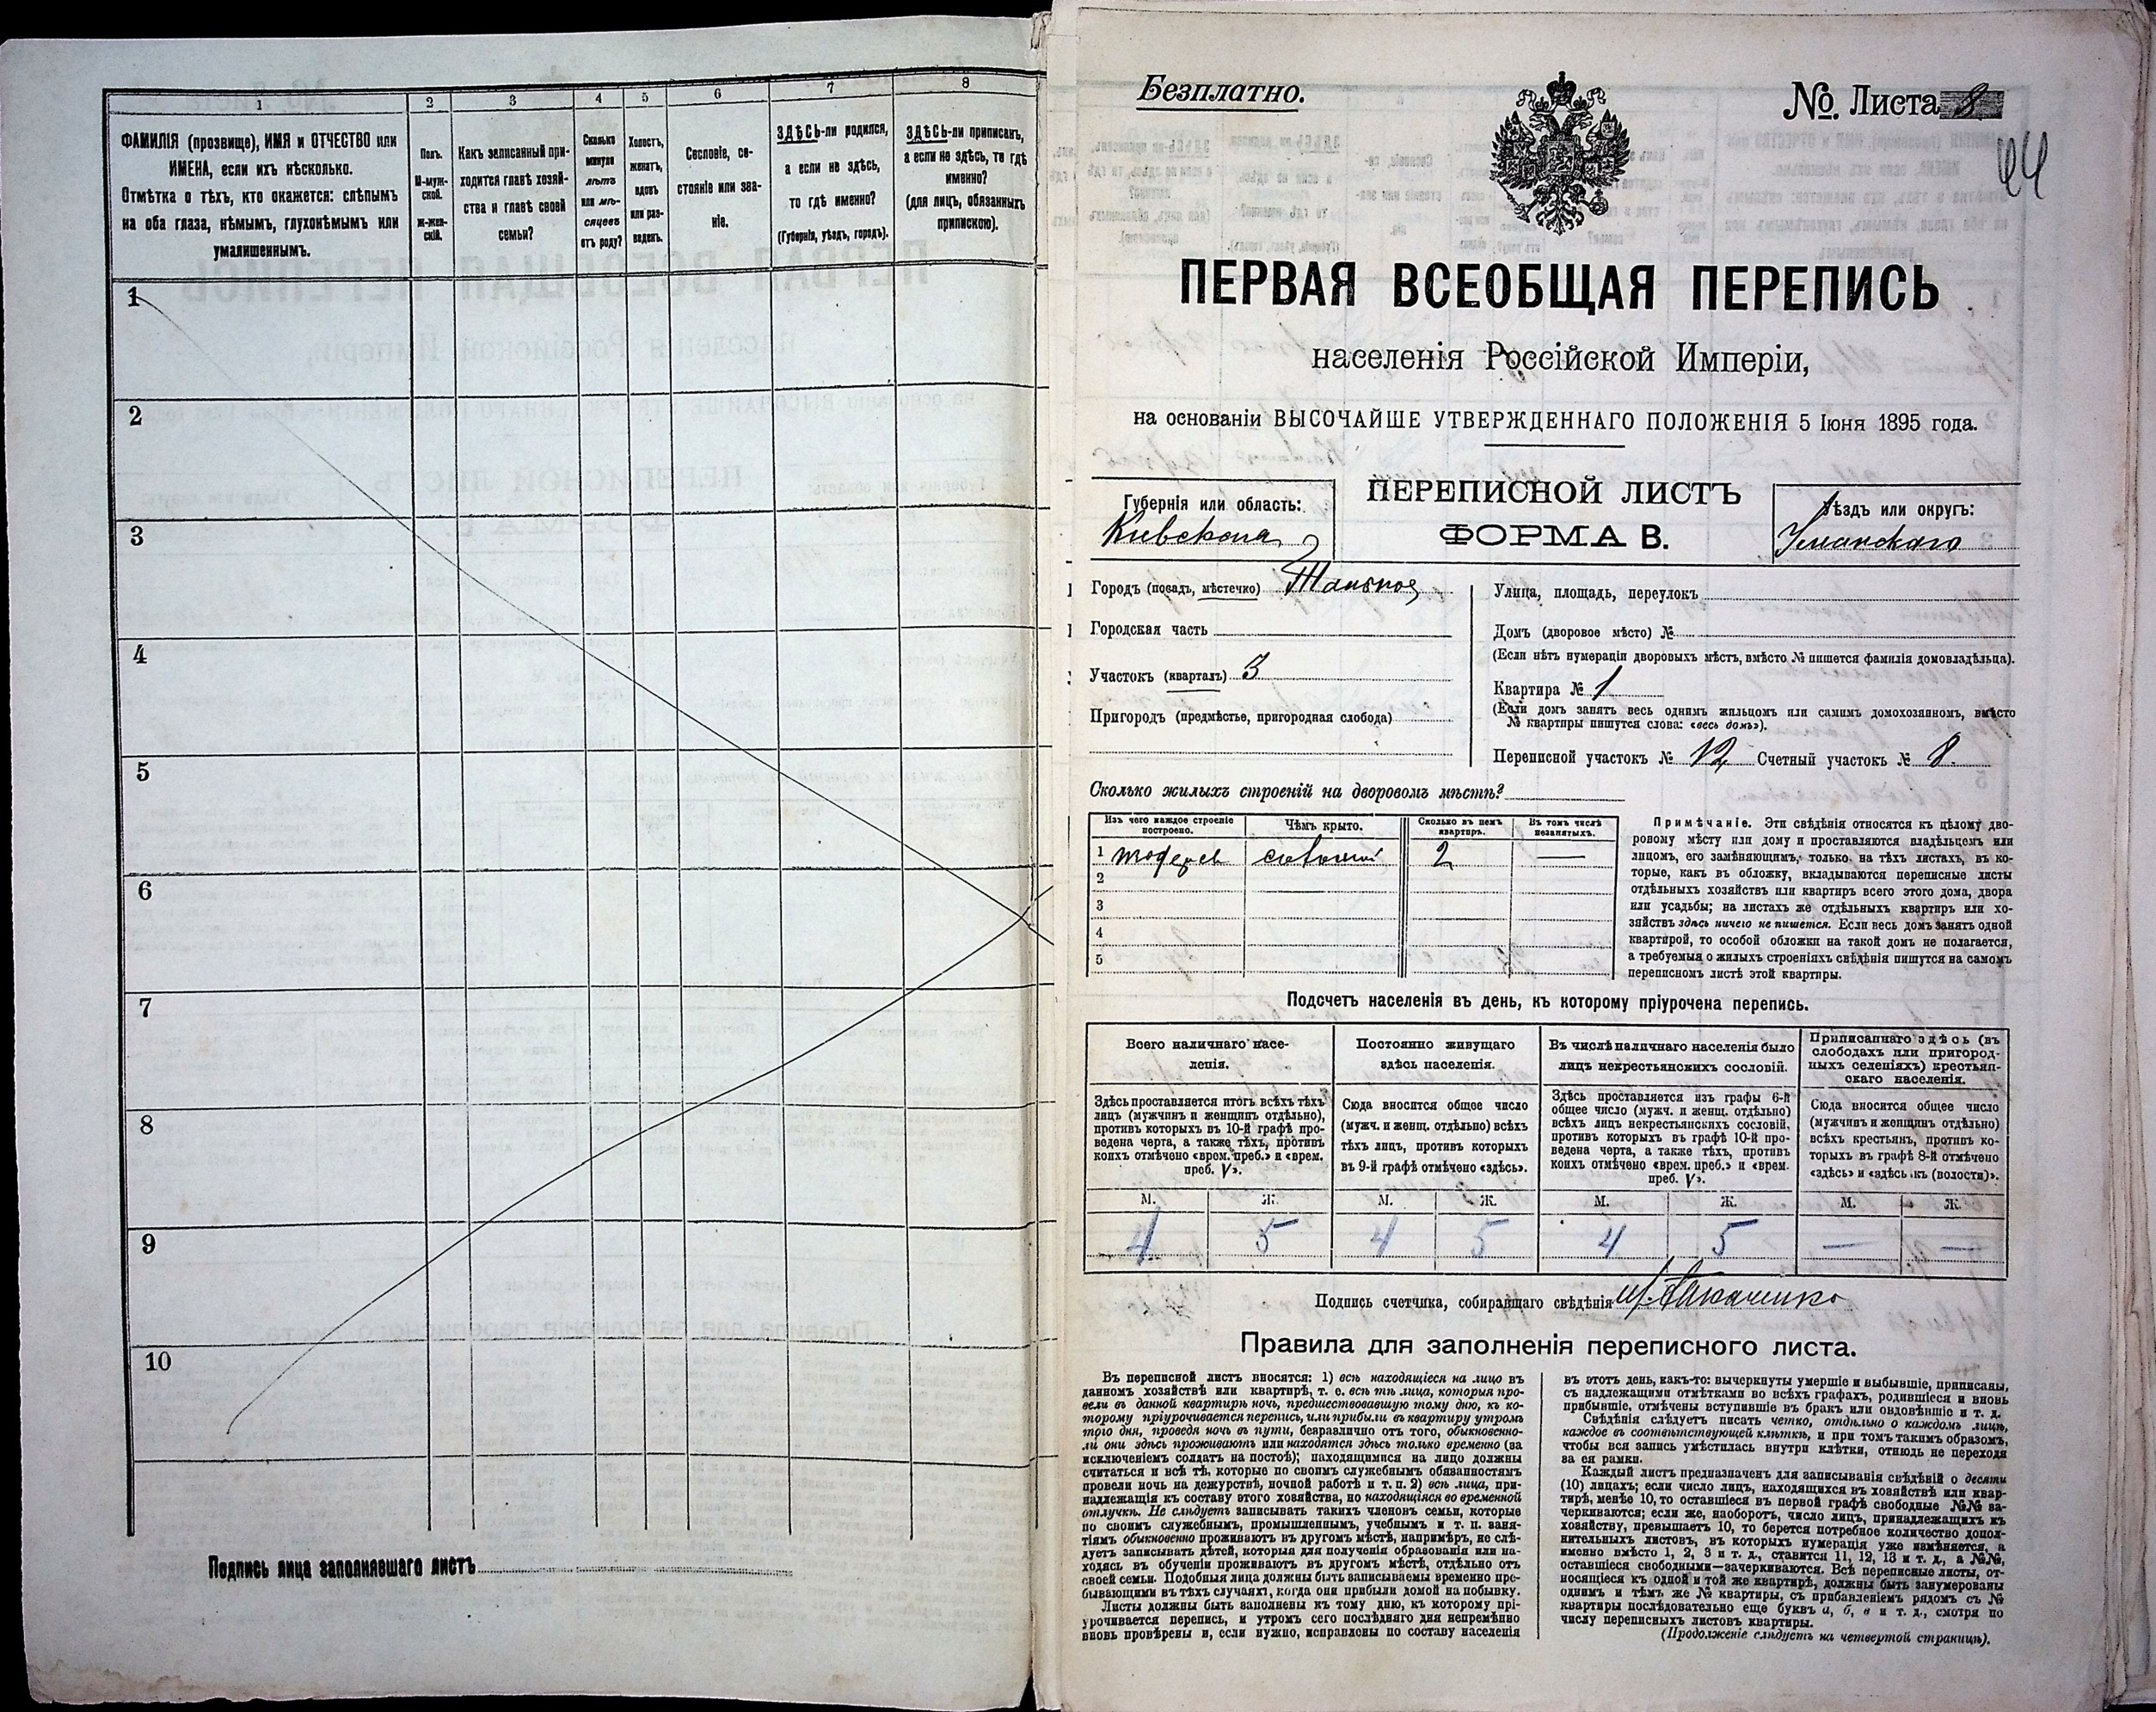 1
2
3
4
5
6
7
8
ФАМИЛІЯ (прозвище), ИМЯ и ОТЧЕСТВО или
ИМЕНА, если ихъ нѣсколько.
Отмѣтка о тѣхъ, кто окажется: слѣпымъ
на оба глаза, нѣмымъ, глухонѣмымъ или
умалишеннымъ.
Полъ.
М-муж-
ской.
Ж-жен-
скій.
Какъ записанный при-
ходится главѣ хозяй-
ства и главѣ своей
семьи?
Сколько
минуло
лѣтъ
или мѣ-
сяцевъ
отъ роду?
Холостъ,
женатъ,
вдовъ
или раз-
веденъ.
Сословіе, со-
стояніе или зва-
ніе.
ЗДѢСЬ-ли родился,
а если не здѣсь,
то гдѣ именно?
(Губернія, уѣздъ, городъ).
ЗДѢСЬ-ли приписанъ,
а если не здѣсь, то гдѣ
именно?
(для лицъ, обязанныхъ
припискою).
1
2
3
4
5
6
7
8
9
10
Подпись лица заполнявшаго листъ
Безплатно.
№ Листа 8
44
ПЕРВАЯ ВСЕОБЩАЯ ПЕРЕПИСЬ
населенія Россійской Имперіи,
на основаніи ВЫСОЧАЙШЕ УТВЕРЖДЕННАГО ПОЛОЖЕНІЯ 5 Іюня 1895 года.
Губернія или область:
Кіевская
ПЕРЕПИСНОЙ ЛИСТЪ
ФОРМА В.
Уѣздъ или округъ:
Уманскаго
Городъ (посадъ, мѣстечко) Тальное
Городская часть
Участокъ (кварталъ) 3
Пригородъ (предмѣстье, пригородная слобода)
Улица, площадь, переулокъ
Домъ (дворовое мѣсто) №
(Если нѣтъ нумераціи дворовыхъ мѣстъ, вмѣсто № пишется фамилія домовладѣльца).
Квартира № 1
(Если домъ занятъ весь однимъ жильцомъ или самимъ домохозяиномъ, вмѣсто
№ квартиры пишутся слова: «весь домъ»).
Переписной участокъ № 12 Счетный участокъ № 8.
Сколько жилыхъ строеній на дворовомъ мѣстѣ?
Изъ чего каждое строеніе
построено.
Чѣмъ крыто.
Сколько въ немъ
квартиръ.
Въ томъ числѣ
незанятыхъ.
1 2 —
2
3
4
5
Примѣчаніе. Эти свѣдѣнія относятся къ цѣлому дво-
ровому мѣсту или дому и проставляются владѣльцемъ или
лицомъ, его замѣняющимъ, только на тѣхъ листахъ, въ ко-
торые, какъ въ обложку, вкладываются переписные листы
отдѣльныхъ хозяйствъ или квартиръ всего этого дома, двора
или усадьбы; на листахъ же отдѣльныхъ квартиръ или хо-
зяйствъ здѣсь ничего не пишется. Если весь домъ занятъ одной
квартирой, то особой обложки на такой домъ не полагается,
а требуемыя о жилыхъ строеніяхъ свѣдѣнія пишутся на самомъ
переписномъ листѣ этой квартиры.
Подсчетъ населенія въ день, къ которому пріурочена перепись.
Всего наличнаго насе-
ленія.
Постоянно живущаго
здѣсь населенія.
Въ числѣ наличнаго населенія было
лицъ некрестьянскихъ сословій.
Приписаннаго здѣсь (въ
слободахъ или пригород-
ныхъ селеніяхъ) крестьян-
скаго населенія.
Здѣсь проставляется итогъ всѣхъ тѣхъ
лицъ (мужчинъ и женщинъ отдѣльно),
противъ которыхъ въ 10-й графѣ про-
ведена черта, а также тѣхъ, противъ
коихъ отмѣчено «врем. преб.» и «врем.
преб. V».
Сюда вносится общее число
(мужч. и женщ. отдѣльно) всѣхъ
тѣхъ лицъ, противъ которыхъ
въ 9-й графѣ отмѣчено «здѣсь».
Здѣсь проставляется изъ графы 6-й
общее число (мужч. и женщ. отдѣльно)
всѣхъ лицъ некрестьянскихъ сословій,
противъ которыхъ въ графѣ 10-й про-
ведена черта, а также тѣхъ, противъ
коихъ отмѣчено «врем. преб.» и «врем.
преб. V».
Сюда вносится общее число
(мужчинъ и женщинъ отдѣльно)
всѣхъ крестьянъ, противъ ко-
торыхъ въ графѣ 8-й отмѣчено
«здѣсь» и «здѣсь къ (волости)».
М. Ж. М. Ж. М. Ж. М. Ж.
4 5 4 5 4 5 — —
Подпись счетчика, собиравшаго свѣдѣнія
Правила для заполненія переписного листа.
Въ переписной листъ вносятся: 1) всѣ находящіеся на лицо въ
данномъ хозяйствѣ или квартирѣ, т. е. всѣ тѣ лица, которыя про-
вели въ данной квартирѣ ночь, предшествовавшую тому дню, къ ко-
торому пріурочивается перепись, или прибыли въ квартиру утромъ
того дня, проведя ночь въ пути, безразлично отъ того, обыкновенно-
ли они здѣсь проживаютъ или находятся здѣсь только временно (за
исключеніемъ солдатъ на постоѣ); находящимися на лицо должны
считаться и всѣ тѣ, которые по своимъ служебнымъ обязанностямъ
провели ночь на дежурствѣ, ночной работѣ и т. п. 2) всѣ лица, при-
надлежащія къ составу этого хозяйства, но находящіяся во временной
отлучкѣ. Не слѣдуетъ записывать такихъ членовъ семьи, которые
по своимъ служебнымъ, промышленнымъ, учебнымъ и т. п. заня-
тіямъ обыкновенно проживаютъ въ другомъ мѣстѣ, напримѣръ, не слѣ-
дуетъ записывать дѣтей, которыя для полученія образованія или на-
ходясь въ обученіи проживаютъ въ другомъ мѣстѣ, отдѣльно отъ
своей семьи. Подобныя лица должны быть записываемы временно пре-
бывающими въ тѣхъ случаяхъ, когда они прибыли домой на побывку.
Листы должны быть заполнены къ тому дню, къ которому прі-
урочивается перепись, и утромъ сего послѣдняго дня непремѣнно
вновь провѣрены и, если нужно, исправлены по составу населенія
въ этотъ день, какъ-то: вычеркнуты умершіе и выбывшіе, приписаны,
съ надлежащими отмѣтками во всѣхъ графахъ, родившіеся и вновь
прибывшіе, отмѣчены вступившіе въ бракъ или овдовѣвшіе и т. д.
Свѣдѣнія слѣдуетъ писать четко, отдѣльно о каждомъ лицѣ,
каждое въ соотвѣтствующей клѣткѣ, и при томъ такимъ образомъ,
чтобы вся запись умѣстилась внутри клѣтки, отнюдь не переходя
за ея рамки.
Каждый листъ предназначенъ для записыванія свѣдѣній о десяти
(10) лицахъ; если число лицъ, находящихся въ хозяйствѣ или квар-
тирѣ, менѣе 10, то оставшіеся въ первой графѣ свободные №№ за-
черкиваются; если же, наоборотъ, число лицъ, принадлежащихъ къ
хозяйству, превышаетъ 10, то берется потребное количество допол-
нительныхъ листовъ, въ которыхъ нумерація уже измѣняется, а
именно вмѣсто 1, 2, 3 и т. д., ставится 11, 12, 13 и т. д., а №№,
оставшіеся свободными—зачеркиваются. Всѣ переписные листы, от-
носящіеся къ одной и той же квартирѣ, должны быть занумерованы
однимъ и тѣмъ же № квартиры, съ прибавленіемъ рядомъ съ №
квартиры послѣдовательно еще буквъ а, б, в и т. д., смотря по
числу переписныхъ листовъ квартиры.
(Продолженіе слѣдуетъ на четвертой страницѣ).